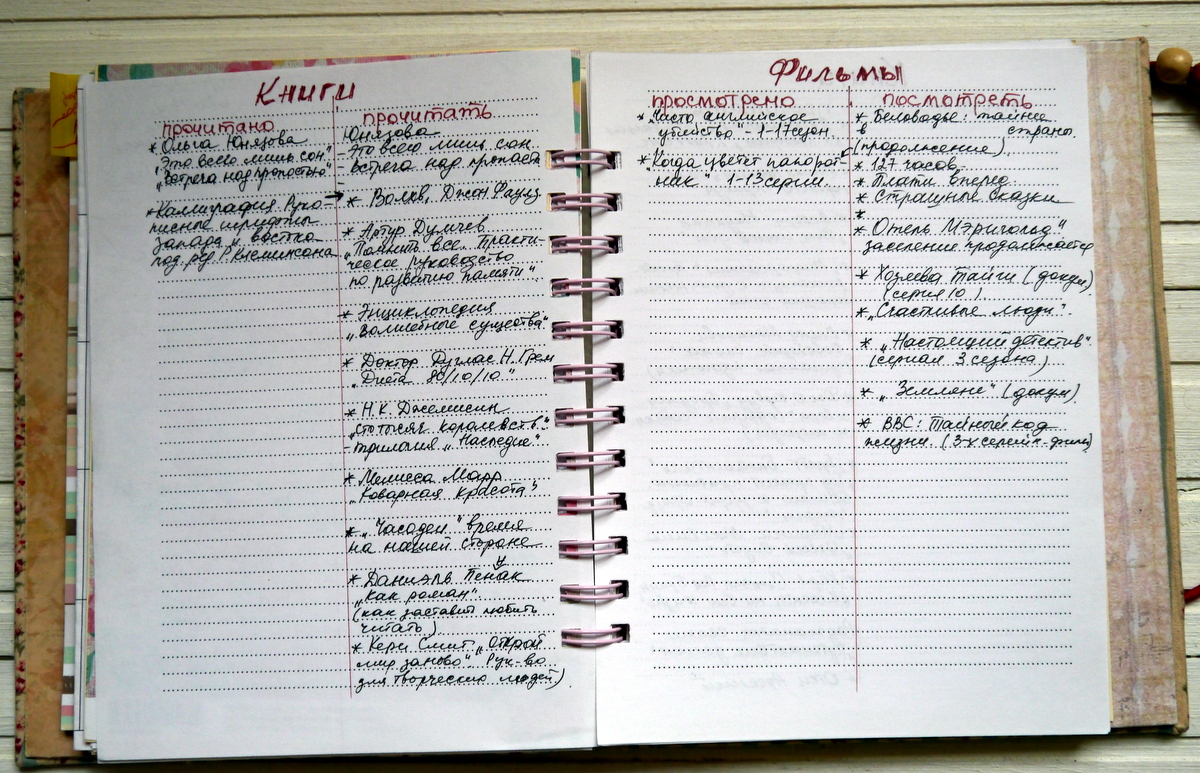 Книги
прочитано
* Ольга Юнязова
"Это всего лишь сон"
"Встреча над пропастью"
* Каллиграфия. Руко-
писные шрифты
запада и востока
под. ред.
прочитать
Юнязова
- Это всего лишь сон
- Встреча над пропаст
* Волхв, Джон Фаулз
* Артур Думчев
"Помнить все. Практи-
ческое руководство
по развитию памяти"
* Энциклопедия
"Волшебные существа"
* Доктор Дуглас Н. Грэм
"Диета 80/10/10"
* Н.К. Джемисин
"Сто тысяч королевств"
- трилогия "Наследие"
* Мелисса Марр
"Коварная красота"
* "Часодеи" время
на нашей стороне
* Даниэль Пенак
"Как роман"
(как заставить любить
читать)
* Кери Смит "Открой
мир заново". Рук-во
для творческих людей)
Фильмы
просмотрено
* Чисто английское
убийство" - 1-17 сезон
* "Когда цветет папорот-
ник" 1-13 серии
посмотреть
* Беловодье: тайна
в страна
(продолжение)
* 127 часов
* Плати вперед
* Страшные сказки
*
* Отель Мэригольд"
заселение продолжается
* Хозяева тайги (докум)
(серия 10)
* "Счастливые люди".
* "Настоящий детектив".
(сериал 3 сезона)
* "Земляне" (докум)
* BBC: Тайный код
жизни (3-х серийн.